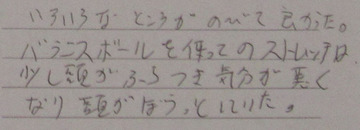 いろいろな ところが のびて 良かった。
バランスボールを使ってのストレッチは
少し頭がふらつき気分が悪く
なり頭がぼうっとしていた。